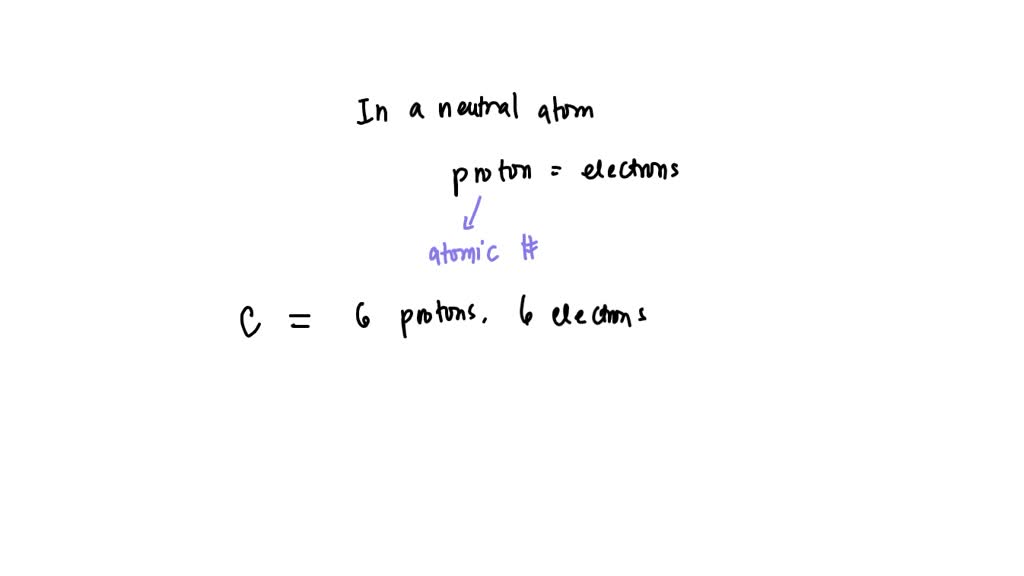 In a neutral atom
proton = electrons
atomic #
C = 6 protons. 6 electrons